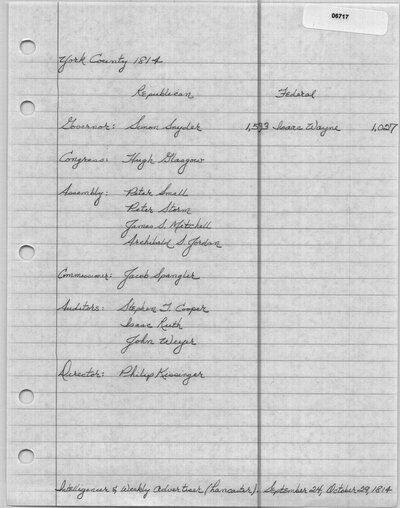 06717
York County 1814
Republican Federal
Governor: Simon Snyder 1,593 Isaac Wayne 1,027
Congress: Hugh Glasgow
Assembly: Peter Small
Peter Storm
James S. Mitchell
Archibald S. Jordan
Commissioner: Jacob Spangler
Auditors: Stephen T. Cooper
Isaac Ruth
John Weyer
Director: Philip Kissinger
Intelligencer & Weekly Advertiser (Lancaster). September 24, October 29, 1814